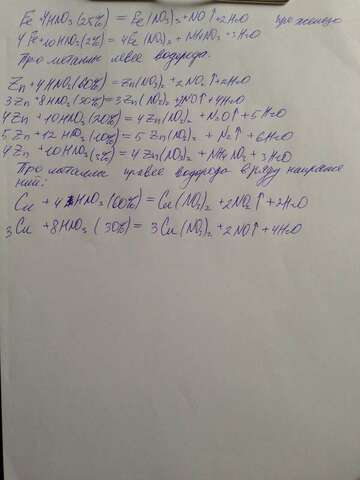 Fe + 4HNO₃(25%) = Fe(NO₃)₃ + NO↑ + 2H₂O про железо
4Fe + 10HNO₃(2%) = 4Fe(NO₃)₂ + NH₄NO₃ + 3H₂O
Про металлы левее водорода.
Zn + 4HNO₃(60%) = Zn(NO₃)₂ + 2NO₂↑ + 2H₂O
3Zn + 8HNO₃(30%) = 3Zn(NO₃)₂ + 2NO↑ + 4H₂O
4Zn + 10HNO₃(20%) = 4Zn(NO₃)₂ + N₂O↑ + 5H₂O
5Zn + 12HNO₃(10%) = 5Zn(NO₃)₂ + N₂↑ + 6H₂O
4Zn + 10HNO₃(3%) = 4Zn(NO₃)₂ + NH₄NO₃ + 3H₂O
Про металлы правее водорода в ряду напряже
ний:
Cu + 4HNO₃(60%) = Cu(NO₃)₂ + 2NO₂↑ + 2H₂O
3Cu + 8HNO₃(30%) = 3Cu(NO₃)₂ + 2NO↑ + 4H₂O